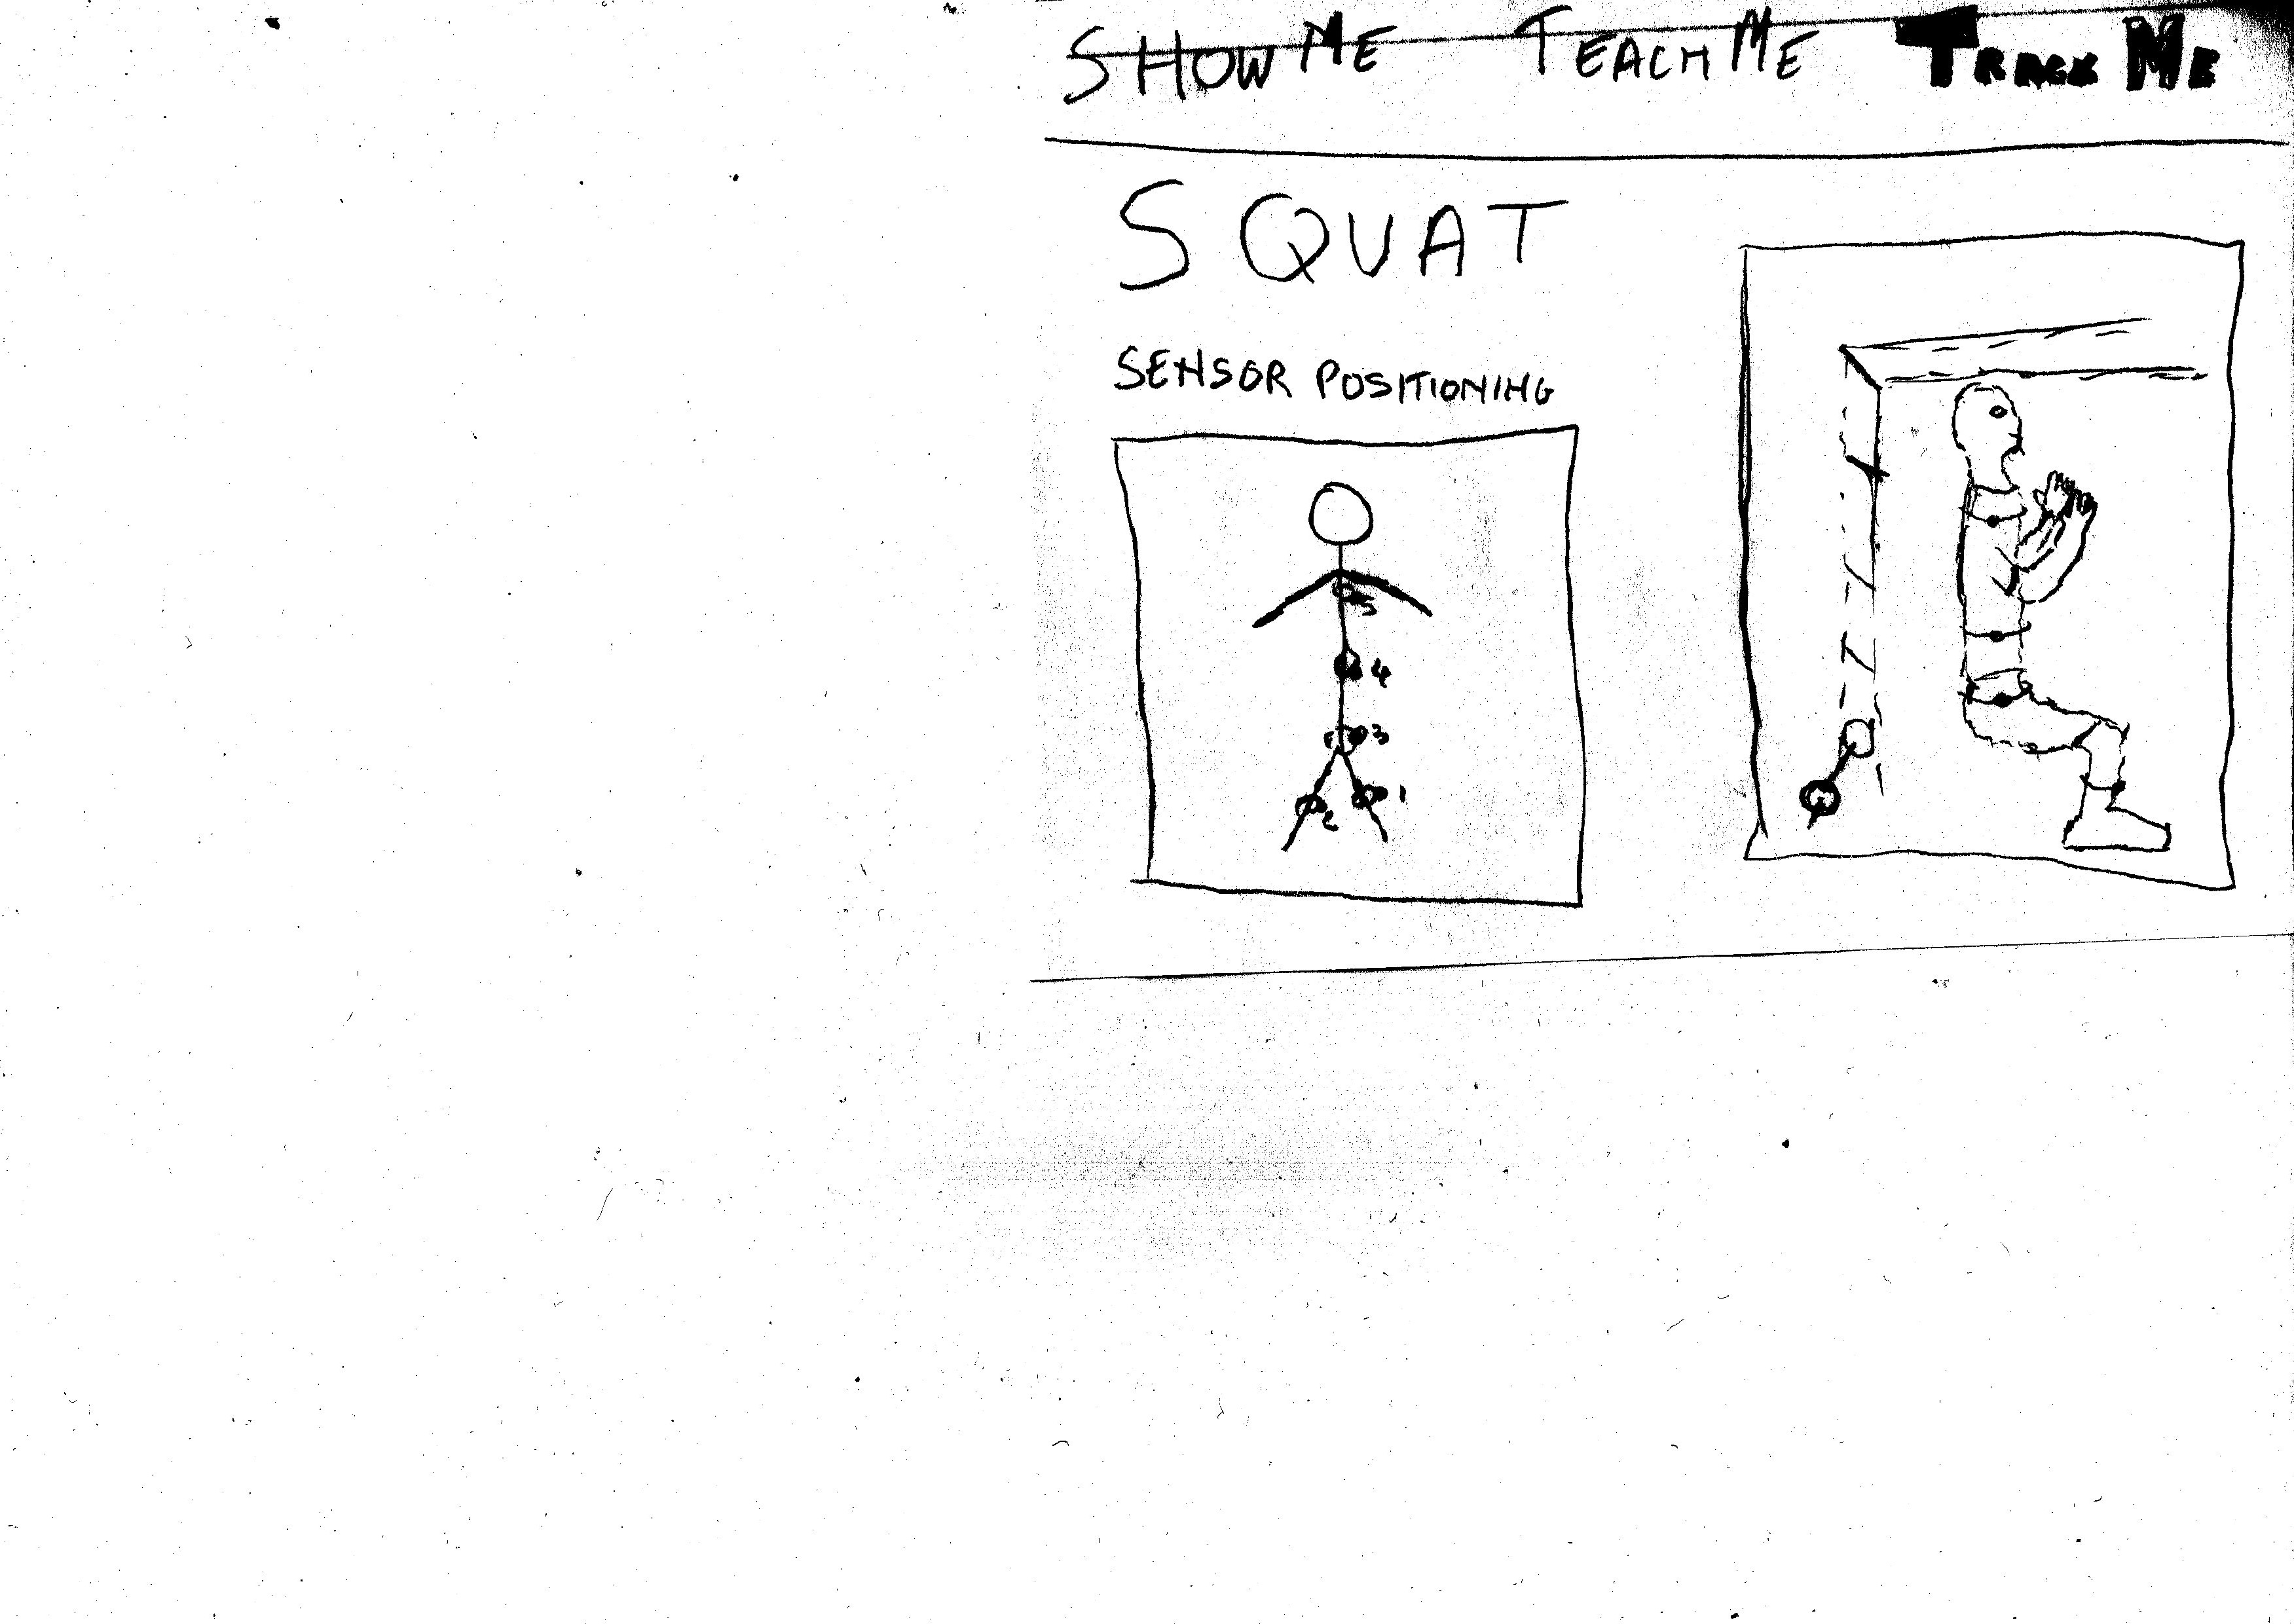 SHOW ME TEACH ME TRACK ME
SQUAT
SENSOR POSITIONING
5
4
3
2 1